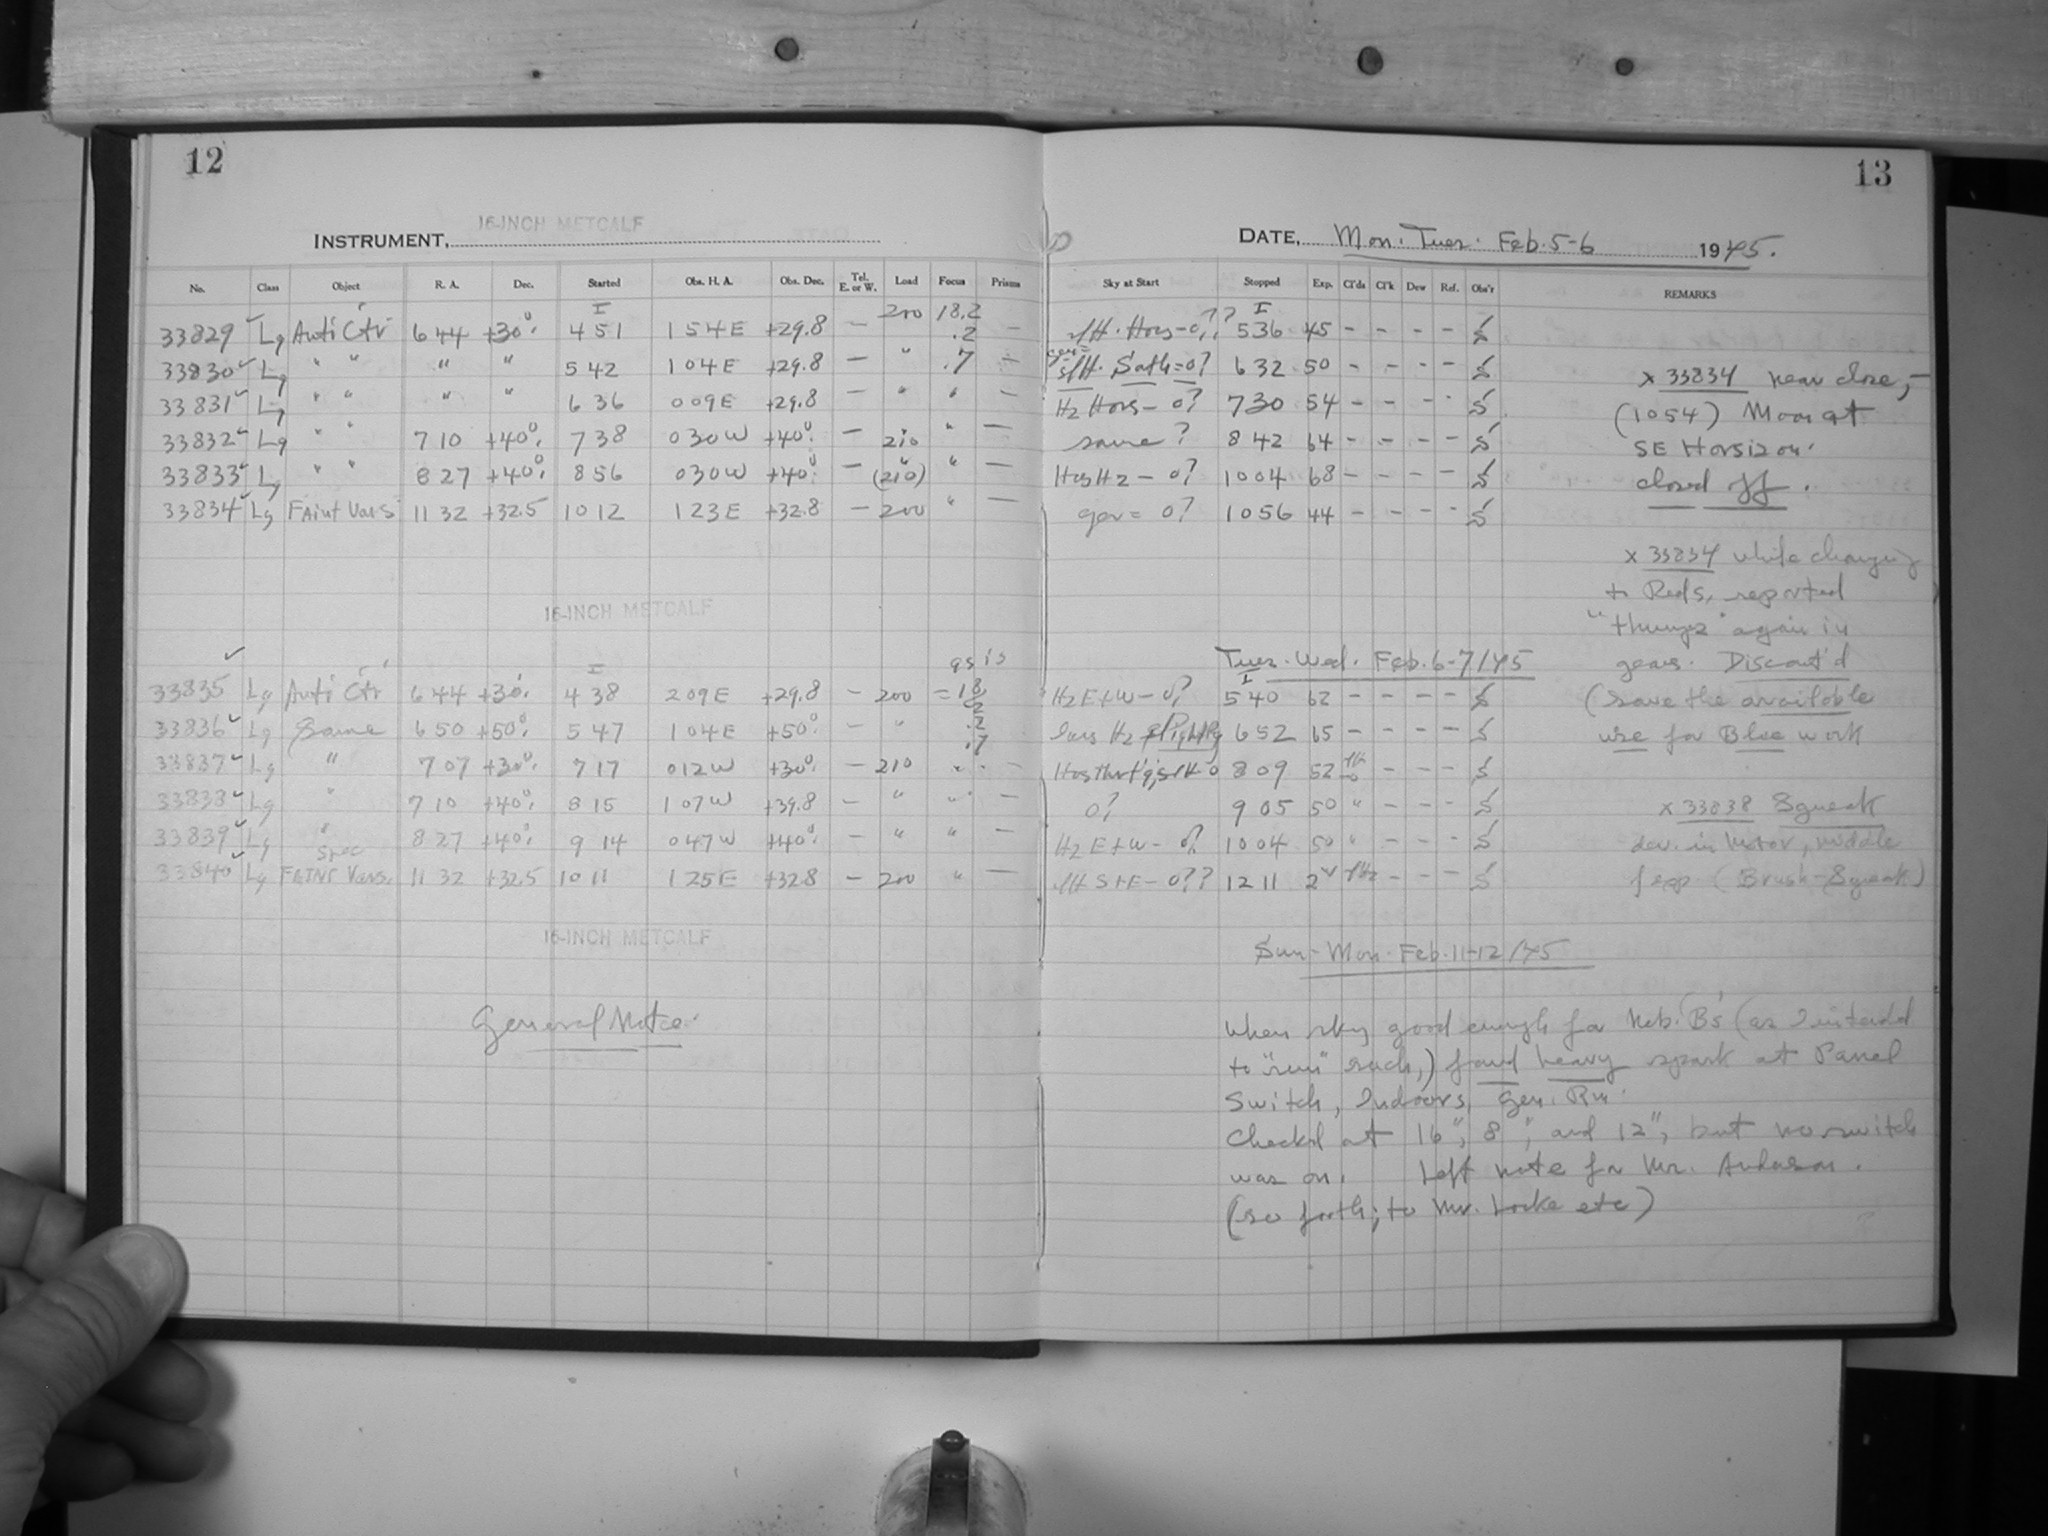 12
16-INCH METCALF
INSTRUMENT,
No. Class Object R. A. Dec. Started Obs. H. A. Obs. Dec. Tel. E. or W. Load Focus Prisms
I 200 18.2
33829 Lg Anti Ctr 6 44 +30° 4 51 1 54 E +29.8 — .2 —
33830 Lg " " " " 5 42 1 04 E +29.8 — " .7 —
33831 Lg " " " " 6 36 0 09 E +29.8 — " " —
33832 Lg " " 7 10 +40° 7 38 0 30 W +40° — 210 " —
33833 Lg " " 8 27 +40° 8 56 0 30 W +40° — (210) " —
33834 Lg FAint Vars 11 32 +32.5 10 12 1 23 E +32.8 — 200 " —
16-INCH METCALF
I
33835 Lg Anti Ctr 6 44 +30° 4 38 2 09 E +29.8 — 200 = 18
33836 Lg Same 6 50 +50° 5 47 1 04 E +50° — "
.7
33837 Lg " 7 07 +30° 7 17 0 12 W +30° — 210 " —
33838 Lg " 7 10 +40° 8 15 1 07 W +39.8 — " " —
33839 Lg " 8 27 +40° 9 14 0 47 W +40° — " " —
Spec
33840 Lg FAINT Vars. 11 32 +32.5 10 11 1 25 E +32.8 — 200 " —
16-INCH METCALF
General Note
13
DATE, Mon. Tues. Feb. 5-6 1945.
Sky at Start Stopped Exp. Cl'ds Cl'k Dew Ref. Obs'r REMARKS
I
Hors — 0?? 5 36 45 - - - - S
0? 6 32 50 - - - - S
H2 Hors — 0? 7 30 54 - - - - S
same? 8 42 64 - - - - S
H2 — 0? 10 04 68 - - - - S
gen = 0? 10 56 44 - - - - S
x 33834 near close, —
(1054) Moon at
SE Horsizon.
closed off.
x 33834 while changing
to Reds, reported
again in
gears. Discont'd
(save the available
use for Blue work
Tues. Wed. Feb. 6-7/45
I
H2 E+W — 0? 5 40 62 - - - - S
H2 6 52 65 - - - - S
8 09 52 - - - S
0? 9 05 50 " - - - S
H2 E+W — 0? 10 04 50 " - - - S
S+E — 0?? 12 11 2 - - - S
x 33838 Squeak
dev. in Motor, middle
f exp. (Brush-Squeak)
Sun - Mon. Feb. 11-12/45
When sky good enough for Neb. B's (as I intended
to "run" such,) found heavy spark at Panel
Switch, Indoors, Gen. Rm.
Check'd at 16", 8", and 12", but no switch
was on. Left note for Mr.
(so forth; to Mr. Locke etc)